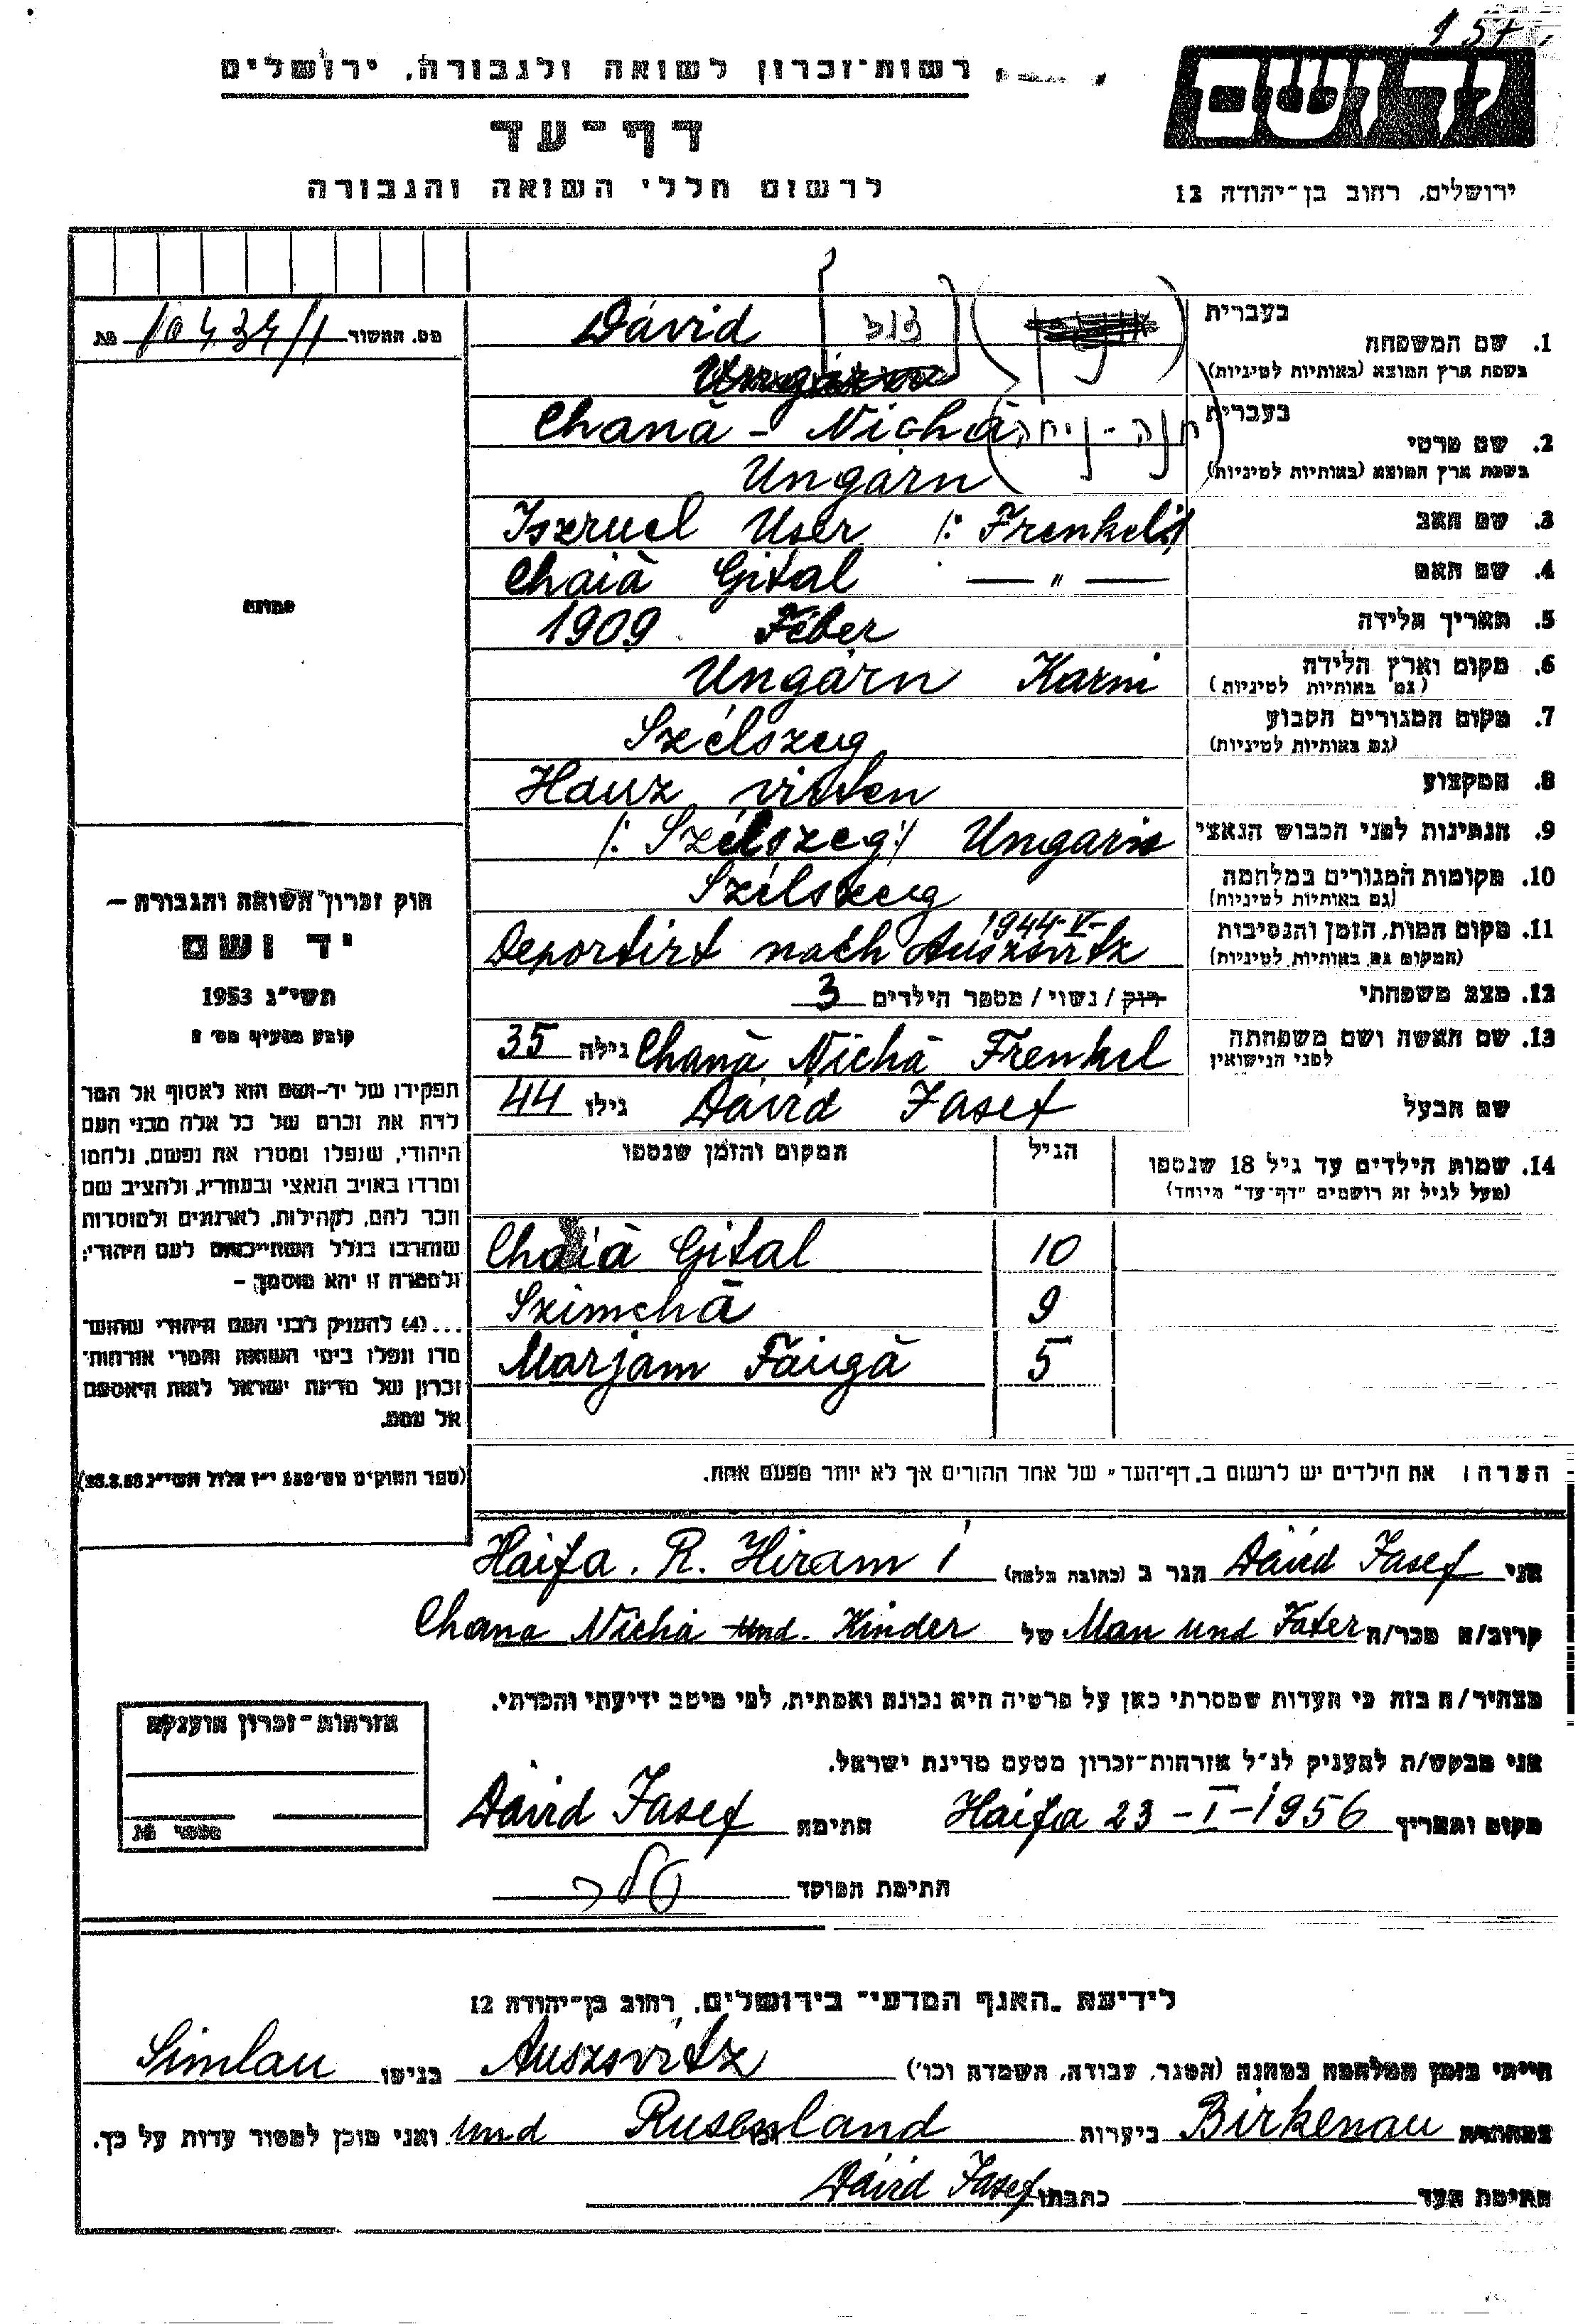 157
רשות-זכרון לשואה ולגבורה, ירושלים
יד ושם
דף-עד
לרשום חללי השואה והגבורה
ירושלים, רחוב בן-יהודה 12
1. שם המשפחה בעברית דוד Dávid
בשפת ארץ המוצא (באותיות לטיניות)
2. שם פרטי בעברית חנה-ניחה Chaná - Nichá
בשפת ארץ המוצא (באותיות לטיניות) Ungarn
3. שם האב Iszruel User /: Frenkel :/
4. שם האם Chaiá Gital — " —
5. תאריך הלידה 1909 Feber
6. מקום וארץ הלידה Ungárn Karni
(גם באותיות לטיניות)
7. מקום המגורים הקבוע Szélszeg
(גם באותיות לטיניות)
8. המקצוע Hauz virten
9. הנתינות לפני הכבוש הנאצי /: Szélszeg :/ Ungarn
10. מקומות המגורים במלחמה Szélszeg
(גם באותיות לטיניות)
11. מקום המות, הזמן והנסיבות 1944-V-
(המקום גם באותיות לטיניות) Deportirt nach Auszvitz
12. מצב משפחתי רוק / נשוי / מספר הילדים 3
13. שם האשה ושם משפחתה Chaná Nichá Frenkel גילה 35
לפני הנישואין
שם הבעל Dávid Jasef גילו 44
14. שמות הילדים עד גיל 18 שנספו הגיל המקום והזמן שנספו
(מעל לגיל זה רושמים "דף-עד" מיוחד)
10 Chaiá Gital
9 Szimchá
5 Marjam Faigá
הערה: את הילדים יש לרשום ב"דף-העד" של אחד ההורים אך לא יותר מפעם אחת.
מס. המשור 10434/1
חוק זכרון השואה והגבורה —
יד ושם
תשי"ג 1953
קובע בסעיף מס' 2
תפקידו של יד-ושם הוא לאסוף אל המו
לדת את זכרם של כל אלה מבני העם
היהודי, שנפלו ומסרו את נפשם, נלחמו
ומרדו באויב הנאצי ובעוזריו, ולהציב שם
וזכר להם, לקהילות, לארגונים ולמוסדות
שנחרבו בגלל השתייכותם לעם היהודי;
ולמטרה זו יהא מוסמך —
...(4) להעניק לבני העם היהודי שהוש
מדו ונפלו בימי השואה והמרי אזרחות־
זכרון של מדינת ישראל לאות היאספם
אל עמם.
(ספר החוקים מס' 132 י"ז אלול תשי"ג 28.8.53)
אני Dávid Jasef הגר ב (כתובת מלאה) Haifa. R. Hiram 1
קרוב/ה מכר/ה Man und Fater של Chana Nicha und. Kinder
מצהיר/ה בזה כי העדות שמסרתי כאן על פרטיה היא נכונה ואמתית, לפי מיטב ידיעתי והכרתי.
אני מבקש/ת להעניק לנ"ל אזרחות-זכרון מטעם מדינת ישראל.
מקום ותאריך Haifa 23-I-1956 חתימה Dávid Jasef
חתימת המוסד
אזרחות-זכרון הוענקה
לידיעת "האגף המדעי" בירושלים, רחוב בן-יהודה 12
הייתי בזמן המלחמה במחנה (הסגר, עבודה, השמדה וכו') Auszvitz בגיטו Simlau
במחתרת Birkenau ביערות Rusenland und ואני מוכן למסור עדות על כך.
חתימת העד כתבתו Dávid Jasef